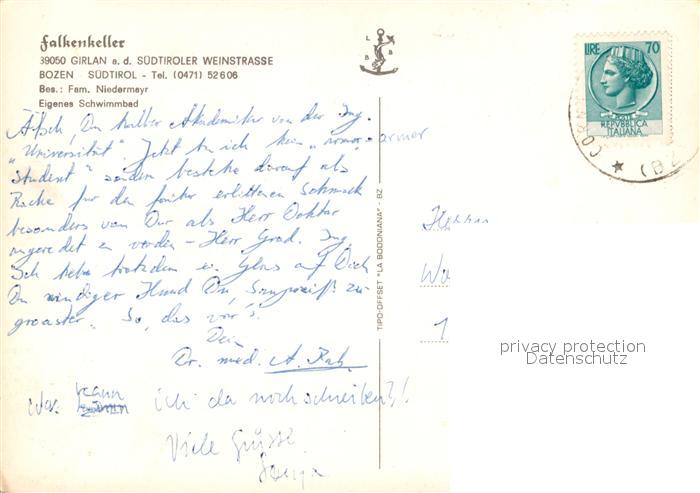 Falkenkeller
39050 GIRLAN a. d. SÜDTIROLER WEINSTRASSE
BOZEN SÜDTIROL - Tel. (0471) 52606
Bes.: Fam. Niedermayr
Eigenes Schwimmbad
L B B
LIRE 70
REPVBBLICA
ITALIANA
(BZ
Ätsch Du halber Akademiker von der Ing.
"Universität". Jetzt bin ich kein "armer
Student" sondern bestehe darauf als
Rache für den früher erlittenen Schmach
besonders von Dir als Herr Doktor
angeredet zu werden - Herr Grad. Ing.
Ich hebe trotzdem ein Glas auf Dich
Du windiger Hund Du,
So, das wär's.
Dein
Dr. med. A.
Was kann ich da noch schreiben?!
Viele Grüsse
TIPO-OFFSET "LA BODONIANA" - BZ
privacy protection
Datenschutz